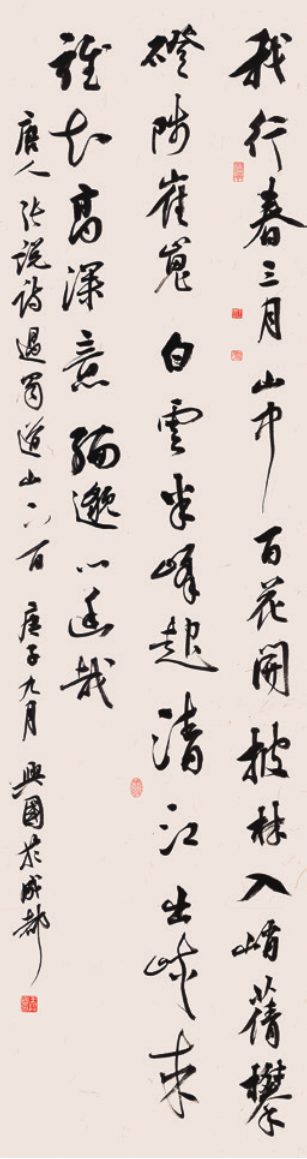 我行春三月山中百花開披林入峭蒨攀
磴陟崔嵬白雲半峰起清江出峽来
誰知高深意緬邈心幽哉
唐人張說詩過蜀道山 庚子九月 興國於成都